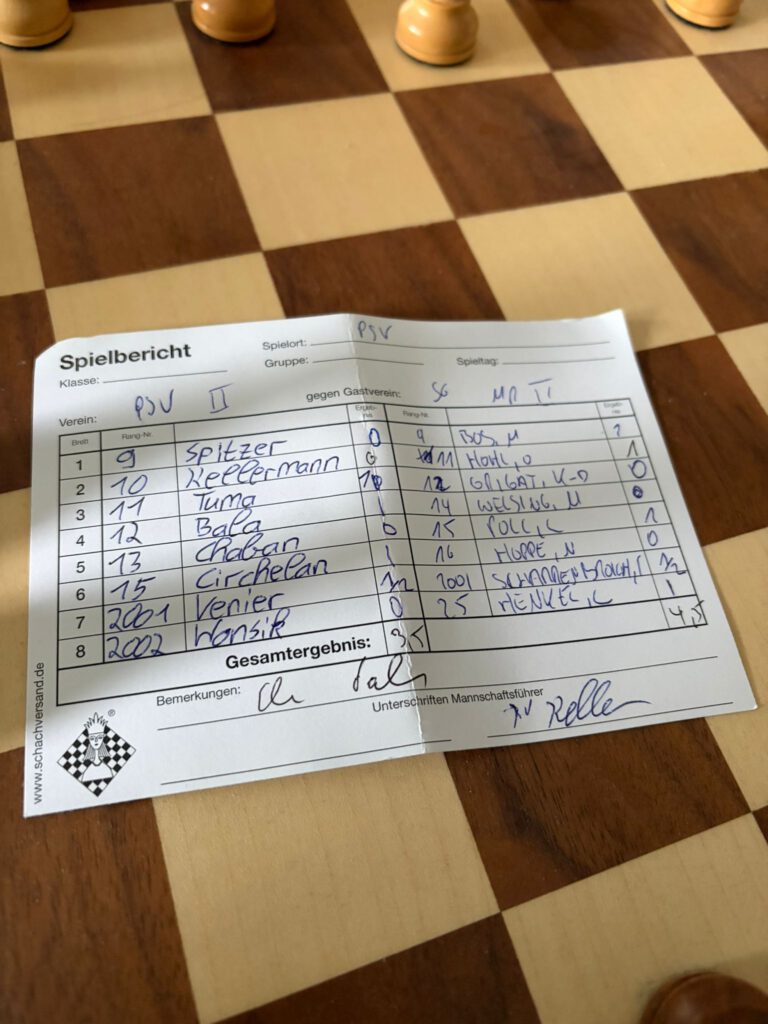 Spielbericht
Spielort: PSV
Klasse:
Gruppe:
Spieltag:
Verein: PSV II gegen Gastverein: SG II
Brett Rang-Nr. Ergebnis Rang-Nr. Ergebnis
1 9 Spitzer 0 9 BOS, M
2 10 Kellermann 0 11 HOHL, O 1
3 11 Tuma 12 GRIGAT, K-D 0
4 12 Bala 1 14 WELSING, M 0
5 13 Chaban 0 15 POLL, C 1
6 15 Circhelan 1 16 HOPPE, N 0
7 2001 Venier 1/2 2001 1/2
8 2002 Wonsik 0 25 HENKEL, C 1
Gesamtergebnis: 3,5 4,5
Bemerkungen:
Unterschriften Mannschaftsführer
www.schachversand.de
®